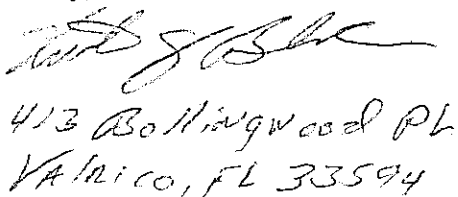 413 Bollingwood PL
VAlRico, FL 33594